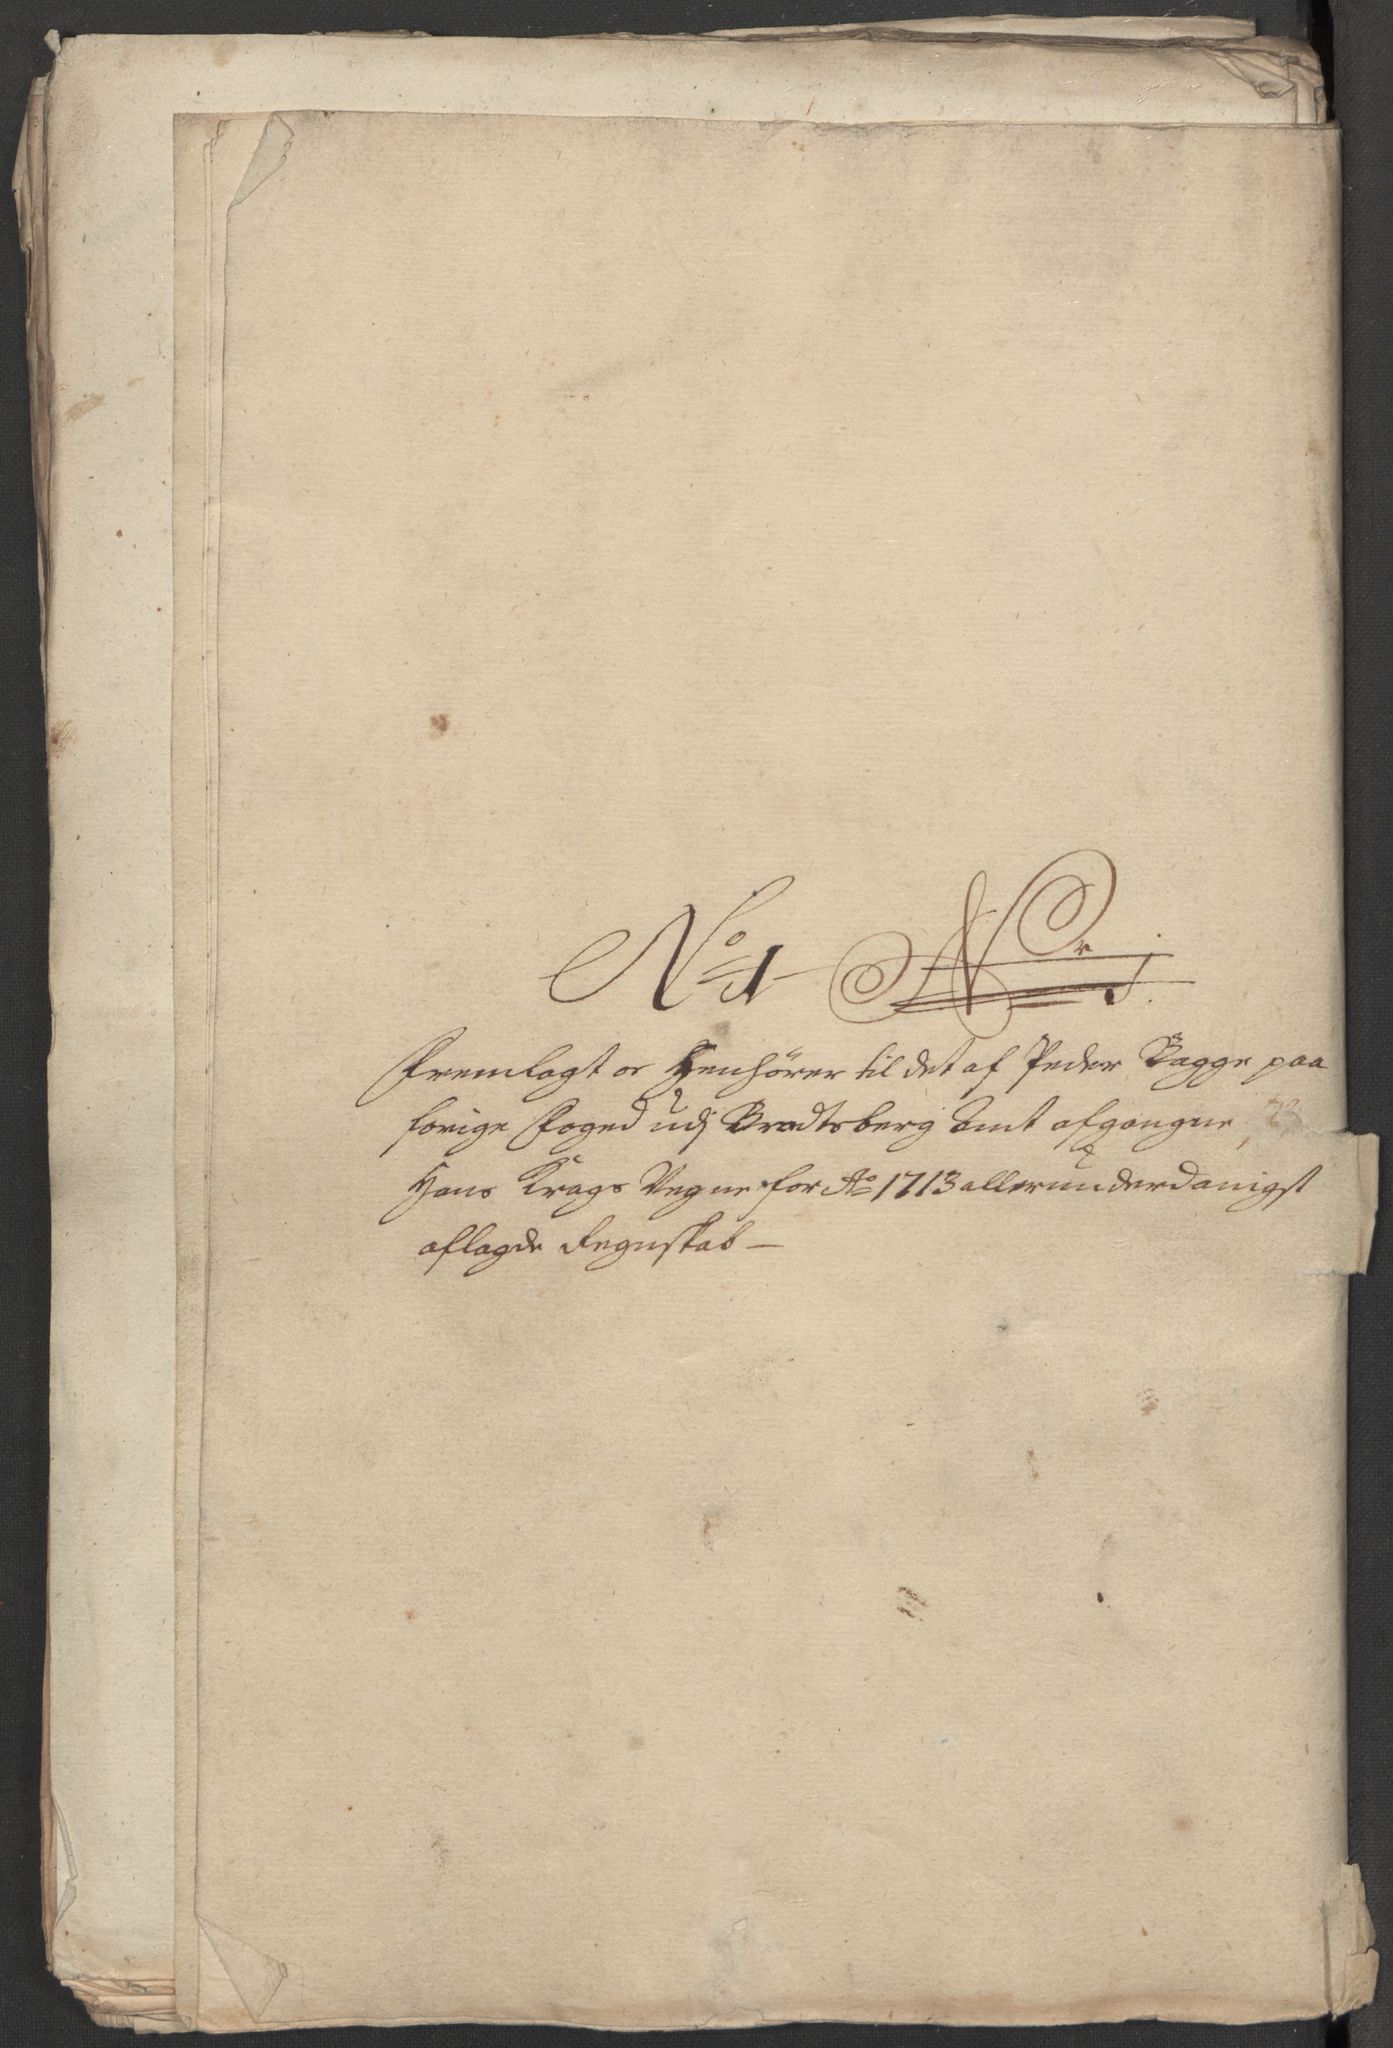 No 1 Nr 1.
Fremlagt oc Henhører til det af Peder Bagge paa
forige Foged udj Bradtsberg Amt afgangne
Hans Krags Vegne for Ao 1713 allerunderdanigst
aflagde Regnskab —